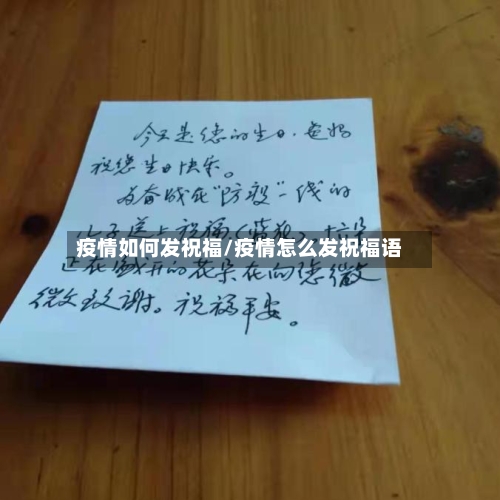 今天是您的生日，爸妈
祝您生日快乐。
为奋战在“防疫”一线的
儿子送上祝福
疫情如何发祝福/疫情怎么发祝福语
正在盛开的花朵在向您微
微笑致谢。祝福平安。